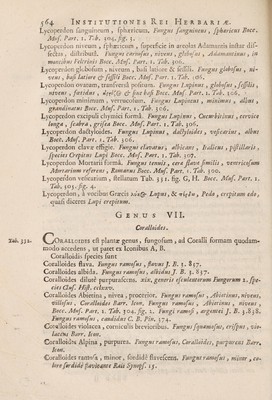 564 INSTITUTIONES REI HERBARIÆ.
Lycoperdon sanguineum, sphæricum. Fungus sanguineus, sphæricus Bocc.
Mus. Part. 1. Tab. 304. fig. 5.
Lycoperdon niveum, sphæricum, superficie in areolas Adamantis instar dis-
sectas, distributâ. Fungus ramosus, niveus, globosus, Adamantinus, in
montibus Felicinis Bocc. Mus. Part. 1. Tab. 300.
Lycoperdon globosum, niveum, basi latiore & fessili. Fungus globosus, ni-
veus, basi latiore & fessili Bocc. Mus. Part. 1. Tab. 306.
Lycoperdon ovatum, transversâ positum. Fungus Lupinus, globosus, fessilis,
niveus, Mus. Part. 1. Tab. 306.
Lycoperdon minimum, verrucosum. Fungus Lupinus, minimus, albus,
Bocc. Mus. Part. 1. Tab. 300.
Lycoperdon excipuli chymici formâ. Fungus Lupinus, Cucurbitinus, cervice
longa, Bocc. Mus. Part. 1. Tab. 300.
Lycoperdon dactyloides. Fungus Lupinus, dactyloides, vescarius, albus
Bocc. Mus. Part. 1. Tab. 306.
Lycoperdon clavæ effigie. Fungus clavatus, albicans, Italicus, pistillaris,
species Crepitus Lupi Bocc. Mus. Part. 1. Tab. 307.
Lycoperdon Mortarii formâ. Fungus tenuis, cera flava similis, vernicosum
Mortarium referens, Romanus Bocc. Mus. Part. 1. Tab. 300.
Lycoperdon vesicarium, stellatum Tab. 331. fig. G, H. Bocc. Mus. Part. 1.
Tab. 305. fig. 4.
Lycoperdon, à vocibus Græcis Lupus, & Pedo, crepitum edo,
quasi diceres Lupi crepitum.
GENUS VII.
Coralloides.
Tab. 332. CORALLOIDES est plantæ genus, fungosum, ad Coralli formam quodam-
modo accedens, ut patet ex Iconibus A, B.
Coralloidis species sunt
Coralloides flava. Fungus ramosus, flavus J. B. 3. 837.
Coralloides albida. Fungus ramosus, albidus J. B. 3. 837.
Coralloides dilutè purpurascens. xix. generis esculentorum Fungorum 2. spe-
cies Cluf. Hist. cclxxv.
Coralloides Abietina, nivea, procerior. Fungus ramosus, Abietinus, niveus,
mitissimus, Coralloides Barr. Icon. Fungus ramosus, Abietinus, niveus,
Bocc. Mus. Part. 1. Tab. 304. fig. 2. Fungi ramosi, argentei J. B. 3.838.
Fungus ramosus, candidus C. B. Pin. 374.
Coralloides violacea, corniculis brevioribus. Fungus squamosus, crispus, vio-
laceus Barr. Icon.
Coralloides Alpina, purpurea. Fungus ramosus, Coralloides, purpureus Barr.
Icon.
Coralloides ramosa, minor, sordidè flavescens. Fungus ramosus, minor, co-
lore sordidè flavicante Raii Synops. 15.